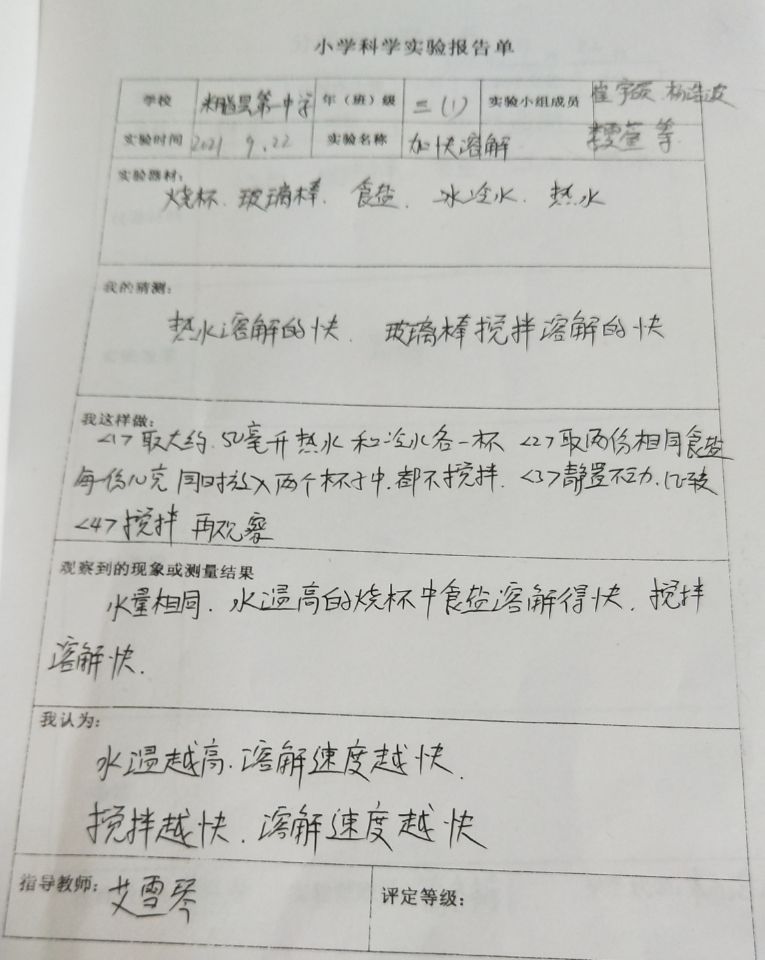 小学科学实验报告单
学校 米脂县第一中学 年（班）级 三（1） 实验小组成员 杨浩波
实验时间 2021 9.22 实验名称 加快溶解 等
实验器材：
烧杯、玻璃棒、食盐、冰冷水、热水
我的猜测：
热水溶解的快、玻璃棒搅拌溶解的快
我这样做：
<1>取大约50毫升热水和冷水各一杯 <2>取两份相同食盐
每份10克同时放入两个杯子中，都不搅拌. <3>静置不动，
<4>搅拌 再观察
观察到的现象或测量结果
水量相同、水温高的烧杯中食盐溶解得快、搅拌
溶解快.
我认为：
水温越高、溶解速度越快、
搅拌越快、溶解速度越快
指导教师：艾雪琴 评定等级：